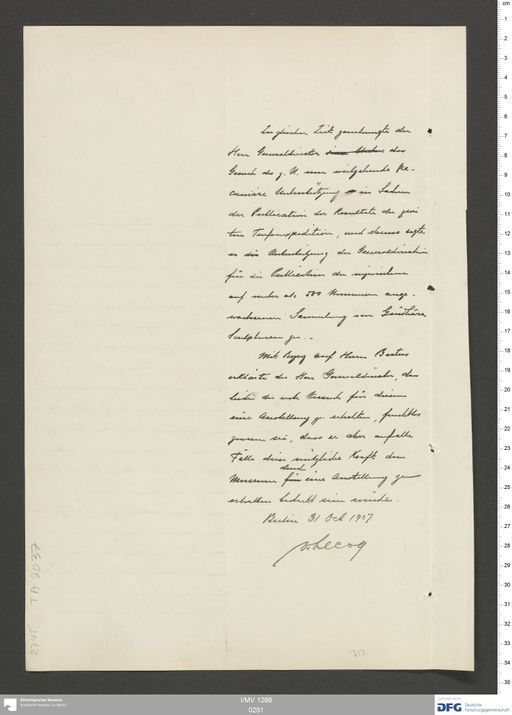 Zu gleicher Zeit genehmigte der
Herr Generaldirector das
Gesuch des g. U. um weitgehende pe-
cuniäre Unterstützung in Sachen
der Publication der Resultate der zwei
ten Turfanexpedition, und ebenso sagte
er die Unterstützung der Generaldirection
für die Publication der
auf mehr als 500 Nummern ange-
wachsenen Sammlung von Gandhâra
Sculpturen zu. -
Mit Bezug auf Herrn Bartus
erklärte der Herr Generaldirector, dass
leider der erste Versuch für diesen
eine Anstellung zu erhalten, fruchtlos
gewesen sei, dass er aber auf alle
Fälle diese nützliche Kraft dem
Museum durch eine Anstellung zu
erhalten bestrebt sein würde.
Berlin 31 Oct 1907
v. Lecoq
TA 2037
312
Ethnologisches Museum
Staatliche Museen zu Berlin
I/MV 1266
0251
Gefördert durch
DFG Deutsche
Forschungsgemeinschaft
cm
1
2
3
4
5
6
7
8
9
10
11
12
13
14
15
16
17
18
19
20
21
22
23
24
25
26
27
28
29
30
31
32
33
34
35